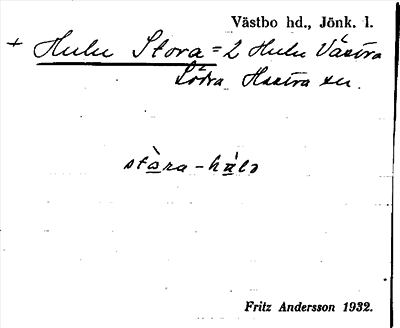 Västbo hd., Jönk. l.
+ Hulu Stora = 2 Hulu Västra
Södra Hestra sn.
stàra-húlə
Fritz Andersson 1932.